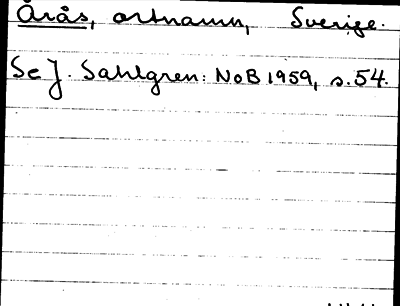 Årås, ortnamn, Sverige.
Se J. Sahlgren: NoB 1959, s. 54.